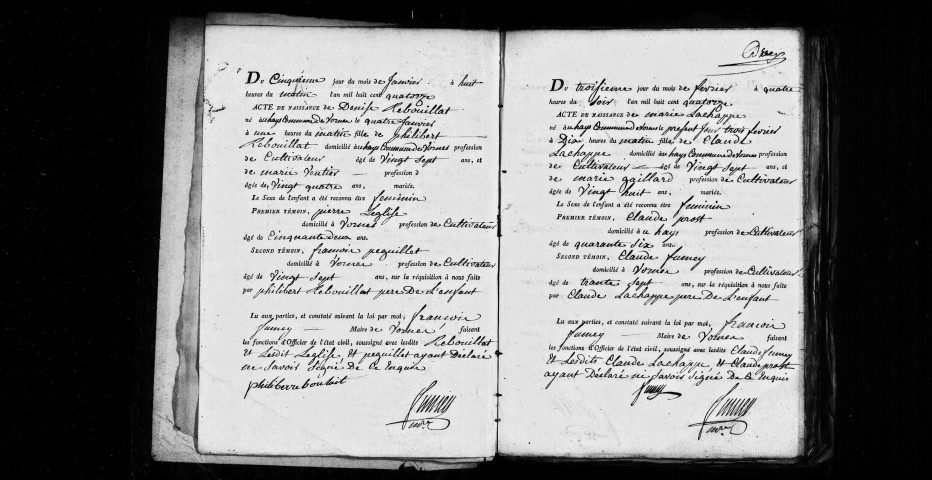 Du Cinquieme jour du mois de Janvier à huit
heures du matin l'an mil huit cent quatorze
ACTE DE NAISSANCE de Denise Rebouillat
né au hays Commune de Vornes le quatre Janvier
à une heures du matin fille de philibert
Rebouillat domicilié au hays Commune de Vornes profession
de Cultivateur âgé de Vingt Sept ans, et
de marie profession d
âgée de Vingt quatre ans, mariés.
Le Sexe de l'enfant a été reconnu être feminin
PREMIER TÉMOIN, pierre Leglise
domicilié à Vornes profession de Cultivateur
âgé de Cinquante deux ans.
SECOND TÉMOIN, francois pequillet
domicilié à Vornes profession de Cultivateur
âgé de Vingt Sept ans, sur la réquisition à nous faite
par philibert Rebouillat pere De L'enfant
Lu aux parties, et constaté suivant la loi par moi, francois
fumey Maire de Vornes faisant
les fonctions d'Officier de l'état civil, soussigné avec lesdits Rebouillat
et Lesdit Leglise, et pequillet ayant Déclaré
ne Savoir Signé De Ce Enquis
fumey
Du troisieme jour du mois de fevrier à quatre
heures du Soir l'an mil huit cent quatorze
ACTE DE NAISSANCE de marie Lachappe
né au hays Commune de Vornes le present Jour trois fevrier
à Dix heures du matin fille de Claude
Lachappe domicilié au hays Commune de Vornes profession
de Cultivateur âgé de Vingt Sept ans, et
de marie gaillard profession de Cultivateur
âgée de Vingt huit ans, mariés.
Le Sexe de l'enfant a été reconnu être feminin
PREMIER TÉMOIN, Claude prost
domicilié à u hays profession de Cultivateur
âgé de quarante Six ans.
SECOND TÉMOIN, Claude fumey
domicilié à Vornes profession de Cultivateur
âgé de trante Sept ans, sur la réquisition à nous faite
par Claude Lachappe pere De L'enfant
Lu aux parties, et constaté suivant la loi par moi, francois
fumey Maire de Vornes faisant
les fonctions d'Officier de l'état civil, soussigné avec lesdits Claude fumey
et Lesdits Claude Lachappe, et Claude prost
ayant Déclaré ne Savoir Signé De Ce Enquis
fumey
fumey